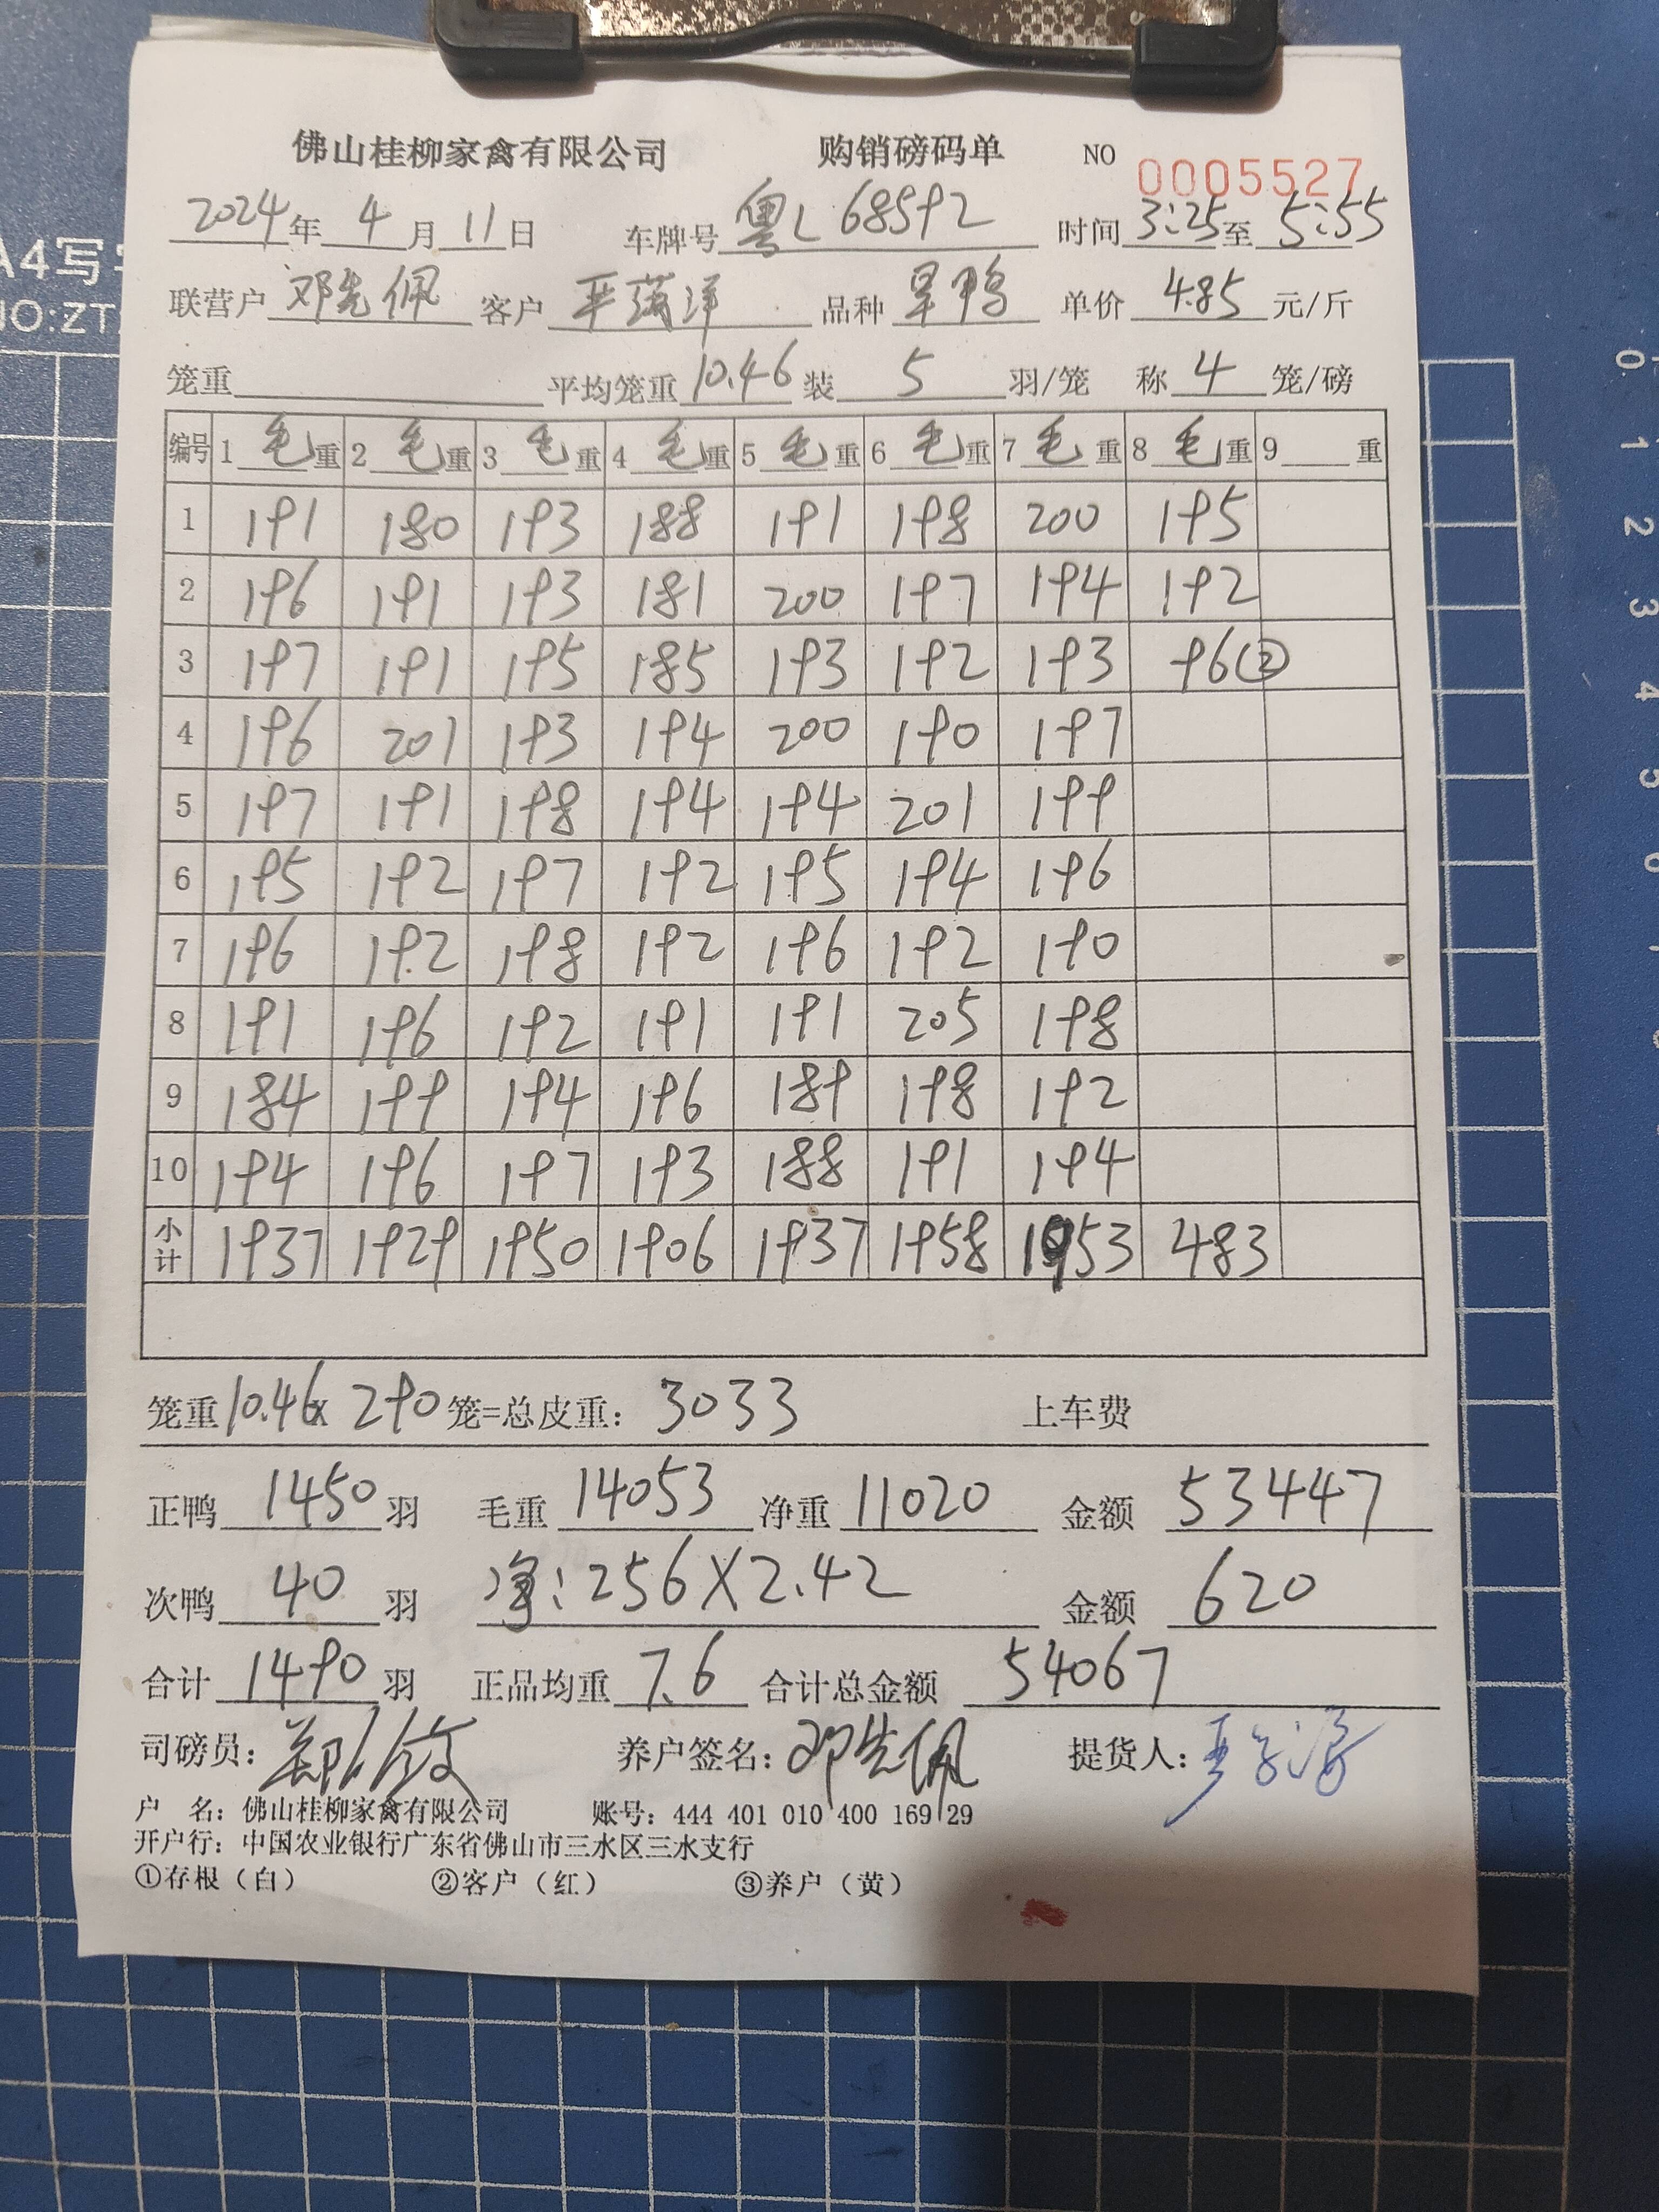 佛山桂柳家禽有限公司 购销磅码单 NO 0005527
2024年 4月 11日 车牌号 粤L 68592 时间 3:25 至 5:55
联营户 邓先佩 客户 品种 旱鸭 单价 4.85 元/斤
笼重 平均笼重 10.46 装 5 羽/笼 称 4 笼/磅
编号 1 毛重 2 毛重 3 毛重 4 毛重 5 毛重 6 毛重 7 毛重 8 毛重 9 重
1 191 180 193 188 191 198 200 195
2 196 191 193 181 200 197 194 192
3 197 191 195 185 193 192 193 96②
4 196 201 193 194 200 190 197
5 197 191 198 194 194 201 199
6 195 192 197 192 195 194 196
7 196 192 198 192 196 192 190
8 191 196 192 191 191 205 198
9 184 199 194 196 189 198 192
10 194 196 197 193 188 191 194
小计 1937 1929 1950 1906 1937 1958 1953 483
笼重 10.46 x 290 笼=总皮重: 3033 上车费
正鸭 1450 羽 毛重 14053 净重 11020 金额 53447
次鸭 40 羽 净:256X2.42 金额 620
合计 1490 羽 正品均重 7.6 合计总金额 54067
司磅员: 养户签名: 邓先佩 提货人:
户 名: 佛山桂柳家禽有限公司 账号: 444 401 010 400 169 29
开户行: 中国农业银行广东省佛山市三水区三水支行
①存根（白） ②客户（红） ③养户（黄）
A4写
NO:ZT
0
1
2
3
4
5
6
7